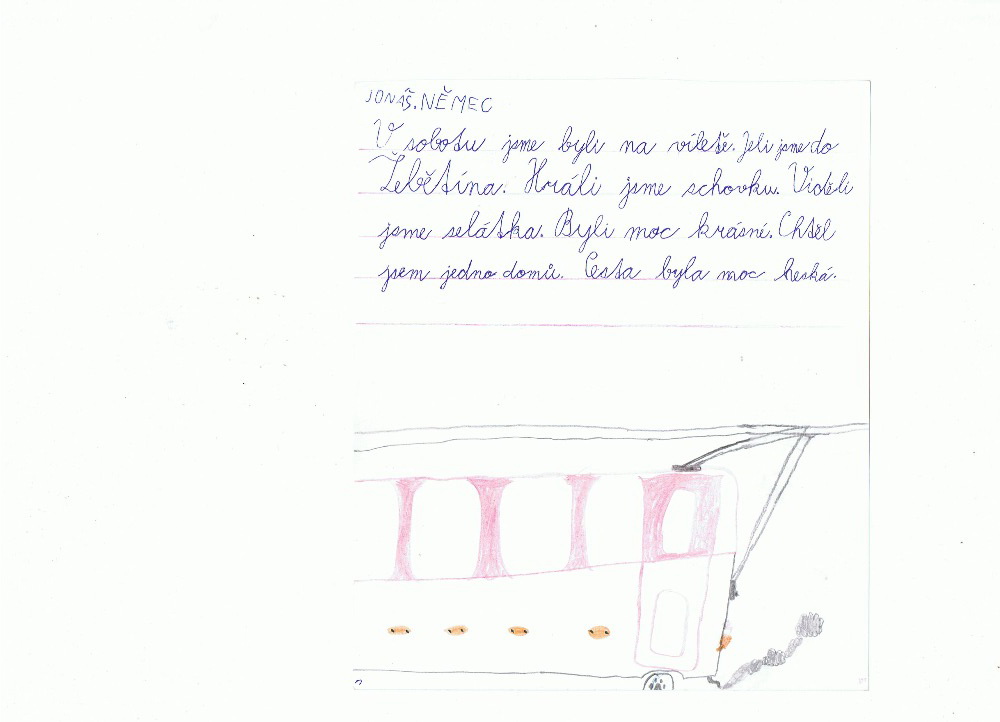 JONÁŠ.NĚMEC
V sobotu jsme byli na víletě. Jeli jsme do
Žebětína. Hráli jsme schovku. Viděli
jsme selátka. Byli moc krásné. Chtěl
jsem jedno domů. Cesta byla moc heská.